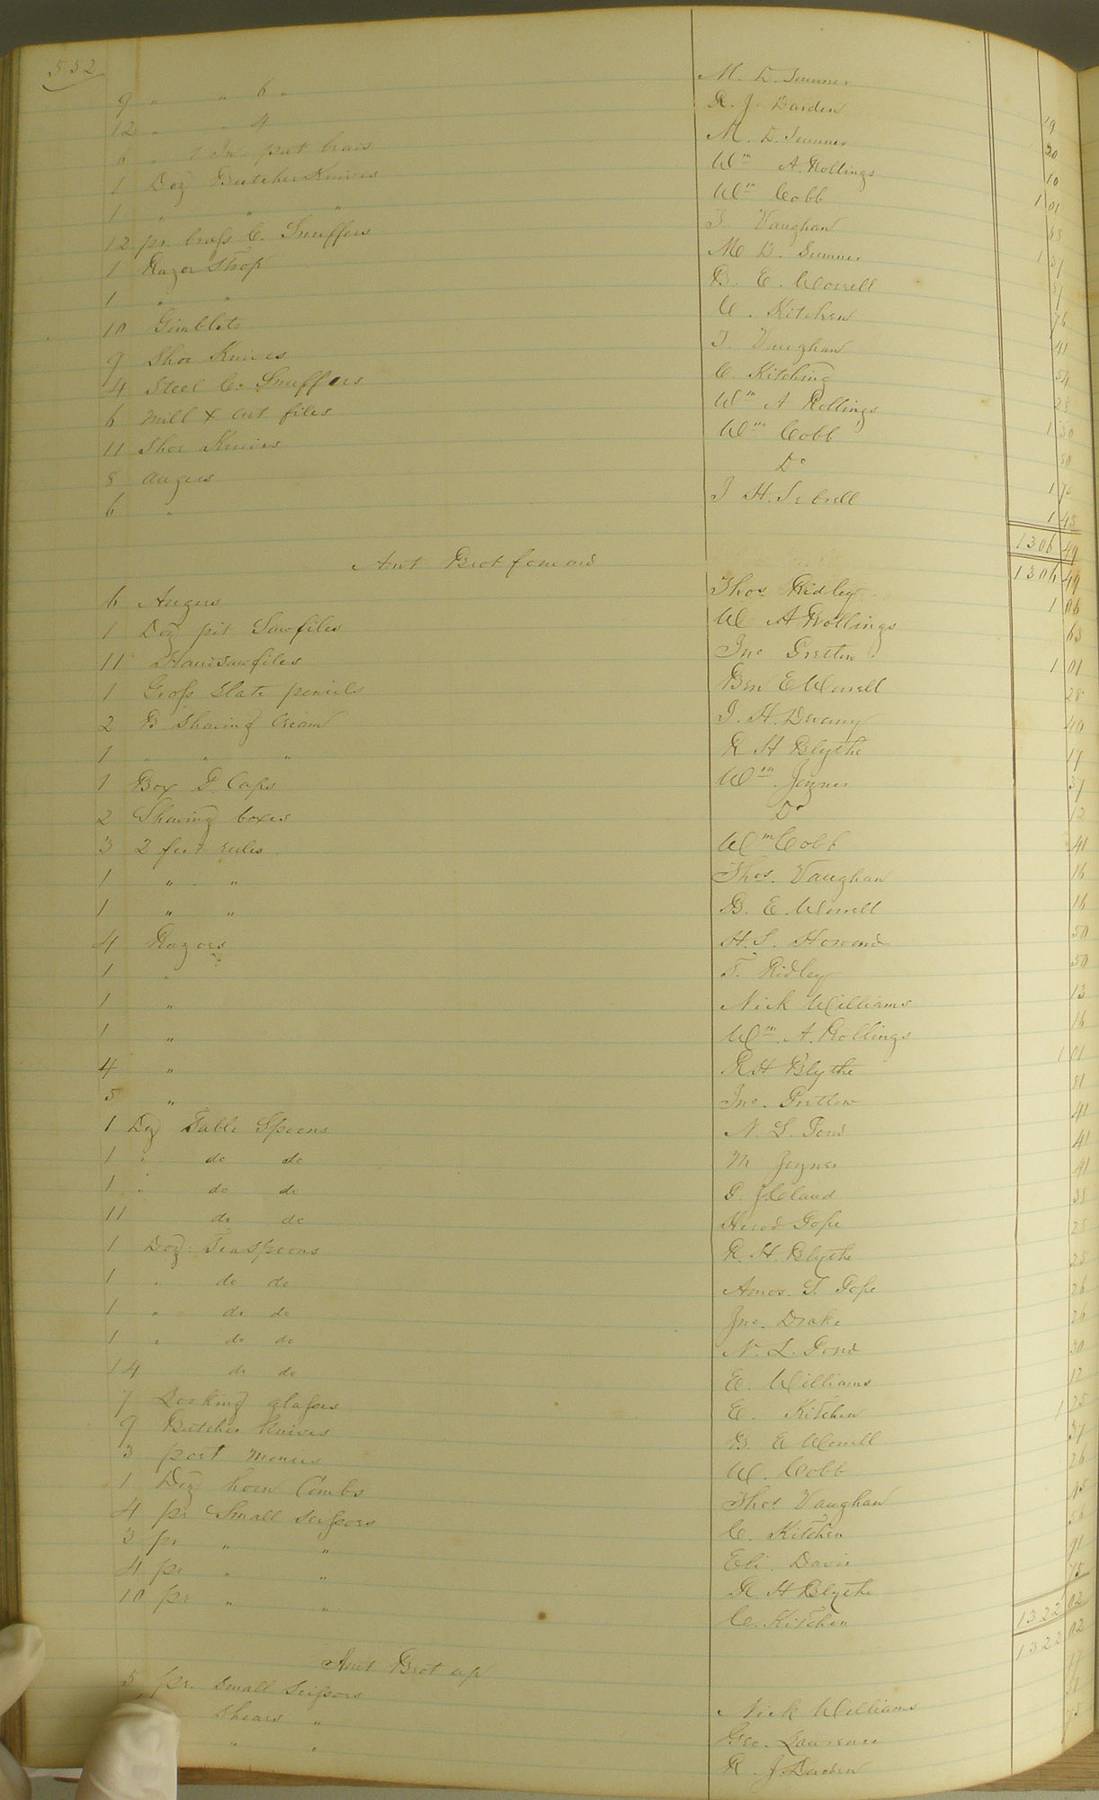 552
9 " " 6 " M. D. Sumner 19
12 " " 4 R. J. Barden 20
6 " put M. D. Sumner 10
1 Doz Butcher Knives Wm A. Rollings 1 01
1 " " " Wm Cobb 88
12 pr. brass C. Snuffers T. Vaughan 1 31
1 Razor Strop M D. Sumner
1 " " B. E. Worrell 76
10 Gimblets C. Kitchen 41
9 Shoe Knives T. Vaughan 54
4 Steel C. Snuffers C Kitching 28
6 Mill X Cut files Wm A Rollings 1 30
11 Shoe Knives Wm Cobb 80
8 augers Do 1 70
6 " J H. Sebrell 1 45
1306 49
Amt Brot forward 1306 49
6 Augers Thos Ridley 1 06
1 Doz pit Saw files W A Rollings 63
11 Handsaw files Jno 1 01
1 Gross Slate pencils Ben E Worrell 28
2 B Shaving Cream J. H. Devany 40
1 " " " R H Blythe 17
1 Box P. Caps Wm Joyner 31
2 Shaving boxes Do 12
3 2 feet rules Wm Cobb 41
1 " " Thos. Vaughan 16
1 " " B. E. Worrell 16
4 Razors H. S. Howard 50
1 " T. Ridley 50
1 " Nick Williams 13
1 " Wm. A. Rollings 16
4 " R H Blythe 1 01
5 " Jno. Pretlow 81
1 Doz Table Spoons N. L. Pond 41
1 " do do M Joyner 41
1 " do do P. J Claud 41
11 do do Herod Pope 38
1 Doz. Teaspoons R. H. Blythe 25
1 " do do Amos. T. Pope 25
1 " do do Jno. Drake 26
1 " do do N. L. Pond 26
14 do do E. Williams 30
7 Looking glasses E. Kitchen 12
9 Butcher Knives B E Worrell 1 25
3 port Monies W. Cobb 37
1 Doz horn Combs Thos Vaughan 26
4 pr Small Scissors C. Kitchen 95
3 pr " " Eli Davis 56
4 pr " " R H Blythe 91
10 pr " " C. Kitchen 75
1322 02
Amt Brot up 1322 02
5 pr. Small Scissors Nick Williams
Shears " Geo. Lawrence
" " R J Barden